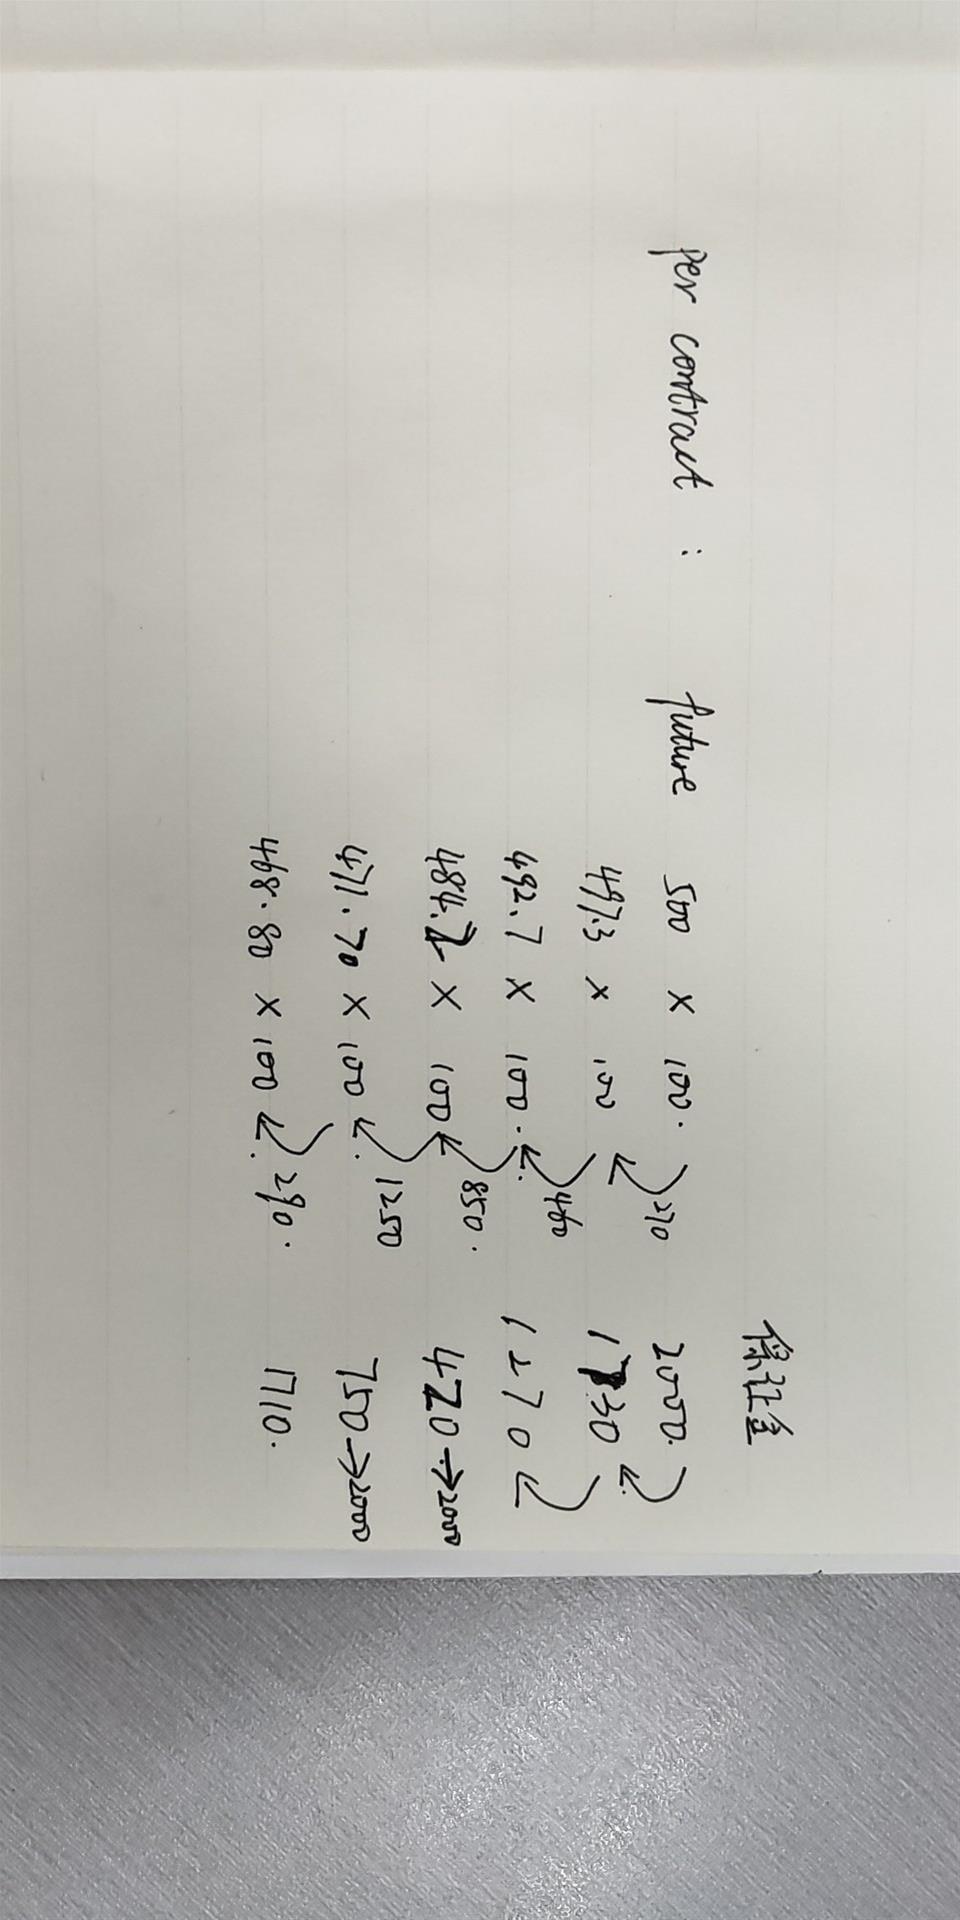 保证金
per contract : future 500 × 100. 270 2000.
497.3 × 100 460 1730
492.7 × 100. 850. 1270
484.2 × 100 1250 420→2000
471.70 × 100 290. 750→2000
468.80 × 100 1710.